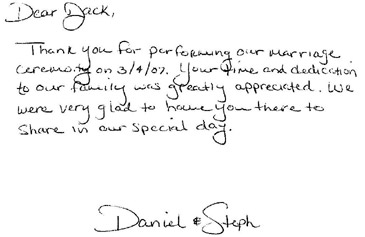 Dear Jack,
Thank you for performing our marriage
ceremony on 3/4/07. Your time and dedication
to our family was greatly appreciated. We
were very glad to have you there to
share in our special day.
Daniel & Steph